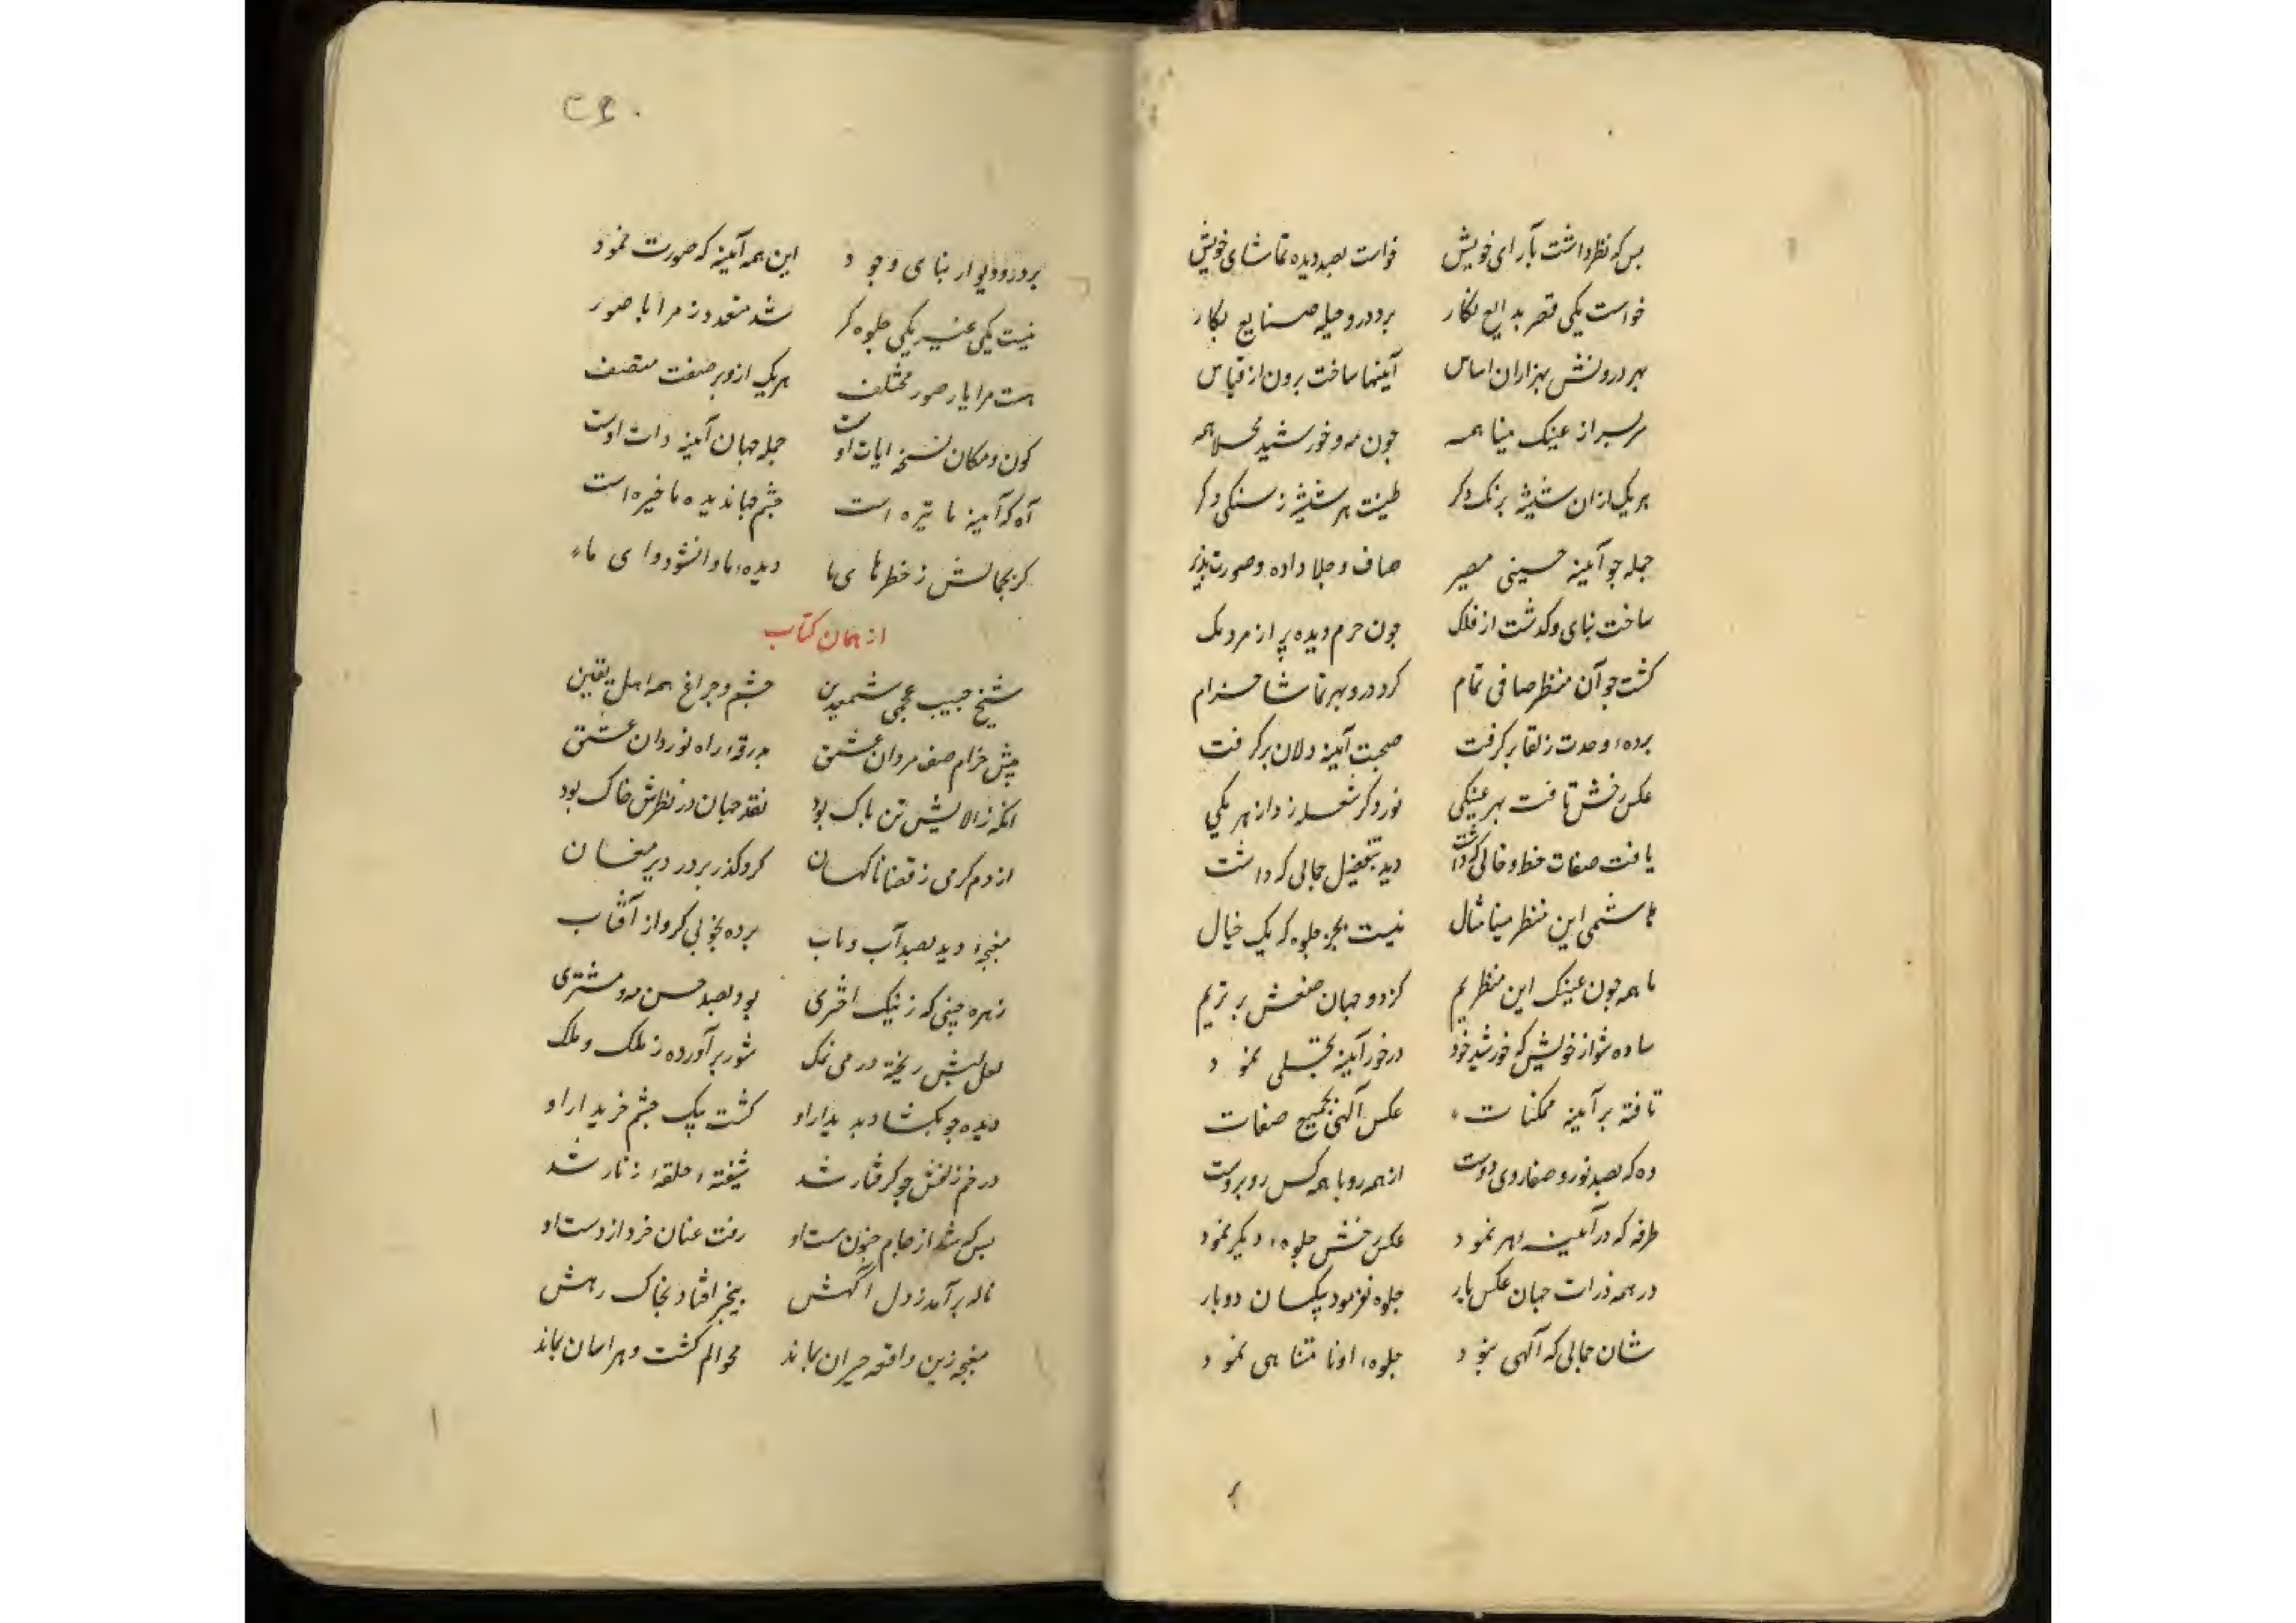 بس که نظر داشت بآرای خویش خواست بصد دیده تماشای خویش
خواست یکی قصر بدایع نگار برد درو حیله صنایع بکار
بهر درونش بهزاران اساس آینها ساخت برون از قیاس
سربسر از عینک مینا همه چون مه و خورشید محلا همه
هر یک ازان شیشه برنک دکر طینت هر شیشه ز سنکی دکر
جمله جو آینه حسینی مصیر صاف و جلا داده و صورت پذیر
ساخت بنای و کذشت از فلک جون حرم دیده پر از مردمک
کشت جو آن منظر صافی تمام کرد درو بهر تماشا خرام
برده وحدت ز لقا برکرفت صحبت آینه دلان برکرفت
عکس رخش تافت بهر عینکی نور دکر شعله زد از هر یکی
یافت صفات خط و خالی که داشت دید بتفصیل جمالی که داشت
هاشمی این منظر مینا مثال نیست بجز جلوه که یک خیال
ما همه جون عینک این منظریم کز دو جهان صنعش برتریم
ساده شو از خویش که خورشید خود در خور آینه تجلی نمود
تافته بر آینه ممکنات عکس آلهی بجمیع صفات
ده که بصد نور و صفا روی دوست از همه رو با همه کس روبروست
طرفه که در آینه هر نمود عکس رخش جلوه دیکر نمود
در همه ذرات جهان عکس یار جلوه نفرمود یکسان دوبار
شان جمالی که آلهی بنود جلوه او نامتناهی نمود
۲۴۰
بر در و دیوار بنای وجود این همه آینه که صورت نمود
نیست یکی غیر یکی جلوه کر شد متعدد ز مرایا صور
هست مرایا ز صور مختلف هر یک ازو بر صفت متصف
کون و مکان نسخه ایات اوست جمله جهان آینه ذات اوست
آه که آینه ما تیره است جشم جهاندیده ما خیره است
کر بجمالش ز خطرهای ما دیده ما وانشود وای ما
از همان کتاب
شیخ حبیب عجمی شمع دین جشم و جراغ همه اهل یقین
پیش خرام صف مردان عشق بدرقه راه نوردان عشق
انکه ز الایش تن پاک بود نقد جهان در نظرش خاک بود
از دم کرمی ز قضا ناکهان کرد کذر بر در دیر مغان
مغبجه دید بصد آب و تاب برده بخوبی کرو از آفتاب
زهره جبینی که ز نیک اختری بود بصد حسن مه و مشتری
لعل لبش ریخته در می نمک شور برآورده ز ملک و ملک
دیده جو بکشاد بدیدار او کشت بیک جشم خریدار او
در خم زلفش جو کرفتار شد شیفته حلقه زنار شد
بس که شد از جام جنون مست او رفت عنان خرد از دست او
ناله برآمد ز دل آکهش بیخبر افتاد بخاک رهش
مغبجه زین واقعه حیران بماند محو الم کشت و هراسان بماند